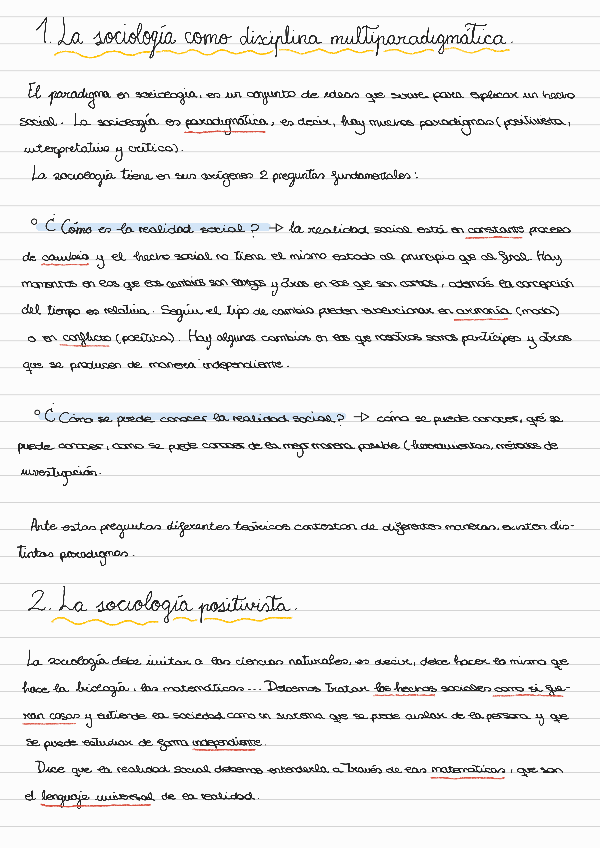 1. La sociología como disciplina multiparadigmática.
El paradigma en sociología, es un conjunto de ideas que sirve para explicar un hecho
social. La sociología es paradigmática, es decir, hay muchos paradigmas (positivista,
interpretativo y crítico).
La sociología tiene en sus orígenes 2 preguntas fundamentales:
° ¿Cómo es la realidad social? → la realidad social está en constante proceso
de cambio y el hecho social no tiene el mismo estado al principio que al final. Hay
momentos en los que los cambios son largos y otros en los que son cortos, además la concepción
del tiempo es relativa. Según el tipo de cambio pueden evolucionar en armonía (moda)
o en conflicto (política). Hay algunos cambios en los que nosotros somos partícipes y otros
que se producen de manera independiente.
° ¿Cómo se puede conocer la realidad social? → cómo se puede conocer, qué se
puede conocer, como se puede conocer de la mejor manera posible (herramientas, métodos de
investigación.
Ante estas preguntas diferentes teóricos contestan de diferentes maneras, existen dis-
tintos paradigmas.
2. La sociología positivista.
La sociología debe imitar a las ciencias naturales, es decir, debe hacer lo mismo que
hace la biología, las matemáticas... Debemos tratar los hechos sociales como si fue-
ran cosas y entiende la sociedad como un sistema que se puede aislar de la persona y que
se puede estudiar de forma independiente.
Dice que la realidad social debemos entenderla a través de las matemáticas, que son
el lenguaje universal de la realidad.